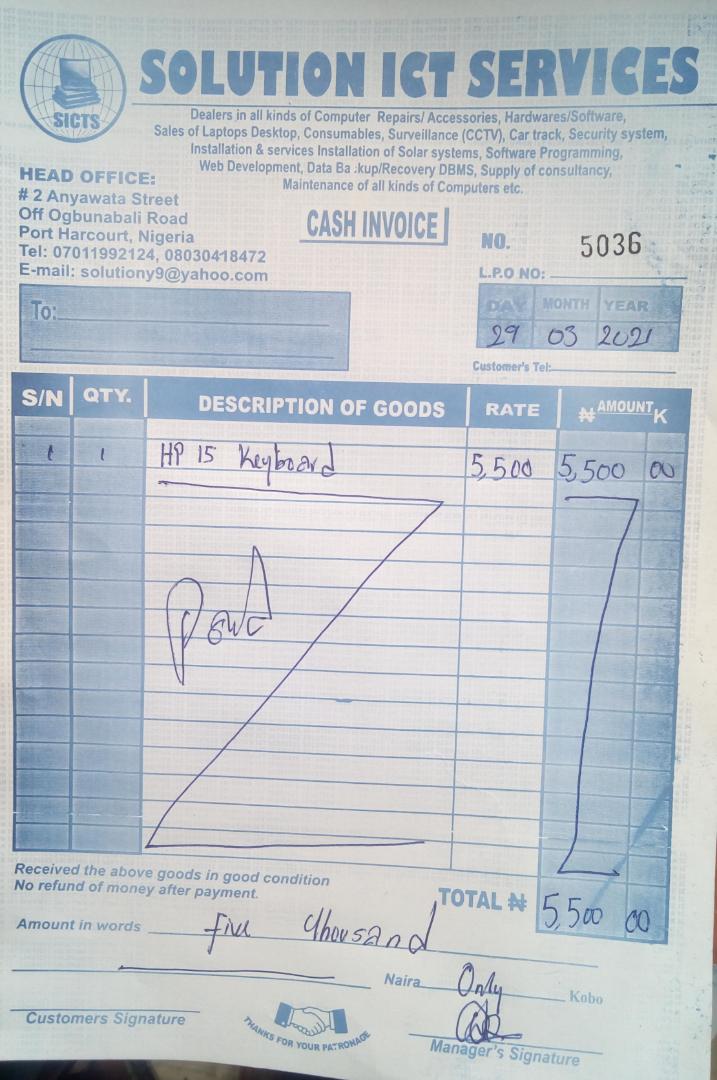 SICTS
SOLUTION ICT SERVICES
Dealers in all kinds of Computer Repairs/ Accessories, Hardwares/Software,
Sales of Laptops Desktop, Consumables, Surveillance (CCTV), Car track, Security system,
Installation & services Installation of Solar systems, Software Programming,
Web Development, Data Ba kup/Recovery DBMS, Supply of consultancy,
Maintenance of all kinds of Computers etc.
HEAD OFFICE:
# 2 Anyawata Street
Off Ogbunabali Road
Port Harcourt, Nigeria
Tel: 07011992124, 08030418472
E-mail: solutiony9@yahoo.com
CASH INVOICE
NO. 5036
L.P.O NO:
To:
DAY MONTH YEAR
29 03 2021
Customer's Tel:
S/N QTY. DESCRIPTION OF GOODS RATE ₦ AMOUNT K
1 1 HP 15 Keyboard 5,500 5,500 00
Received the above goods in good condition
No refund of money after payment.
TOTAL ₦ 5,500 00
Amount in words five thousand
Naira Only Kobo
Customers Signature
THANKS FOR YOUR PATRONAGE
Manager's Signature